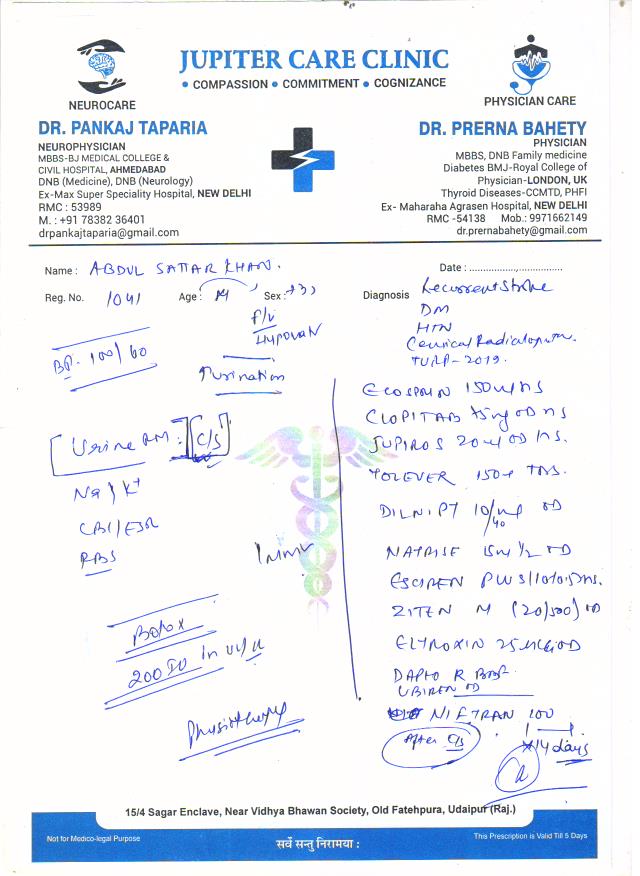 JUPITER CARE CLINIC
• COMPASSION • COMMITMENT • COGNIZANCE
NEUROCARE
DR. PANKAJ TAPARIA
NEUROPHYSICIAN
MBBS-BJ MEDICAL COLLEGE &
CIVIL HOSPITAL, AHMEDABAD
DNB (Medicine), DNB (Neurology)
Ex-Max Super Speciality Hospital, NEW DELHI
RMC : 53989
M. : +91 78382 36401
drpankajtaparia@gmail.com
PHYSICIAN CARE
DR. PRERNA BAHETY
PHYSICIAN
MBBS, DNB Family medicine
Diabetes BMJ-Royal College of
Physician-LONDON, UK
Thyroid Diseases-CCMTD, PHFI
Ex- Maharaha Agrasen Hospital, NEW DELHI
RMC -54138 Mob.: 9971662149
dr.prernabahety@gmail.com
Name : ABDUL SATTAR KHAN.
Reg. No. 1041 Age : Sex :
BP. 100/60
Urine RM : C/S
Na / K+
CBC/ESR
RBS
Botox
200 IU in
Physiotherapy
Date :
Diagnosis Recurrent Stroke
DM
HTN
Cervical
TURP-2019.
ECOSPRIN 150 HS
CLOPITAB 75mg OD HS
JUPIROS 20 OD HS.
150
DILNIP T 10/40 OD
NATRISE 15m 1/2 OD
ZITEN M (20/500) OD
ELTROXIN 25 OD
DAPTO R
OD
NIFTRAN 100
After C/S
x 14 days
15/4 Sagar Enclave, Near Vidhya Bhawan Society, Old Fatehpura, Udaipur (Raj.)
Not for Medico-legal Purpose
सर्वे सन्तु निरामया :
This Prescription is Valid Till 5 Days